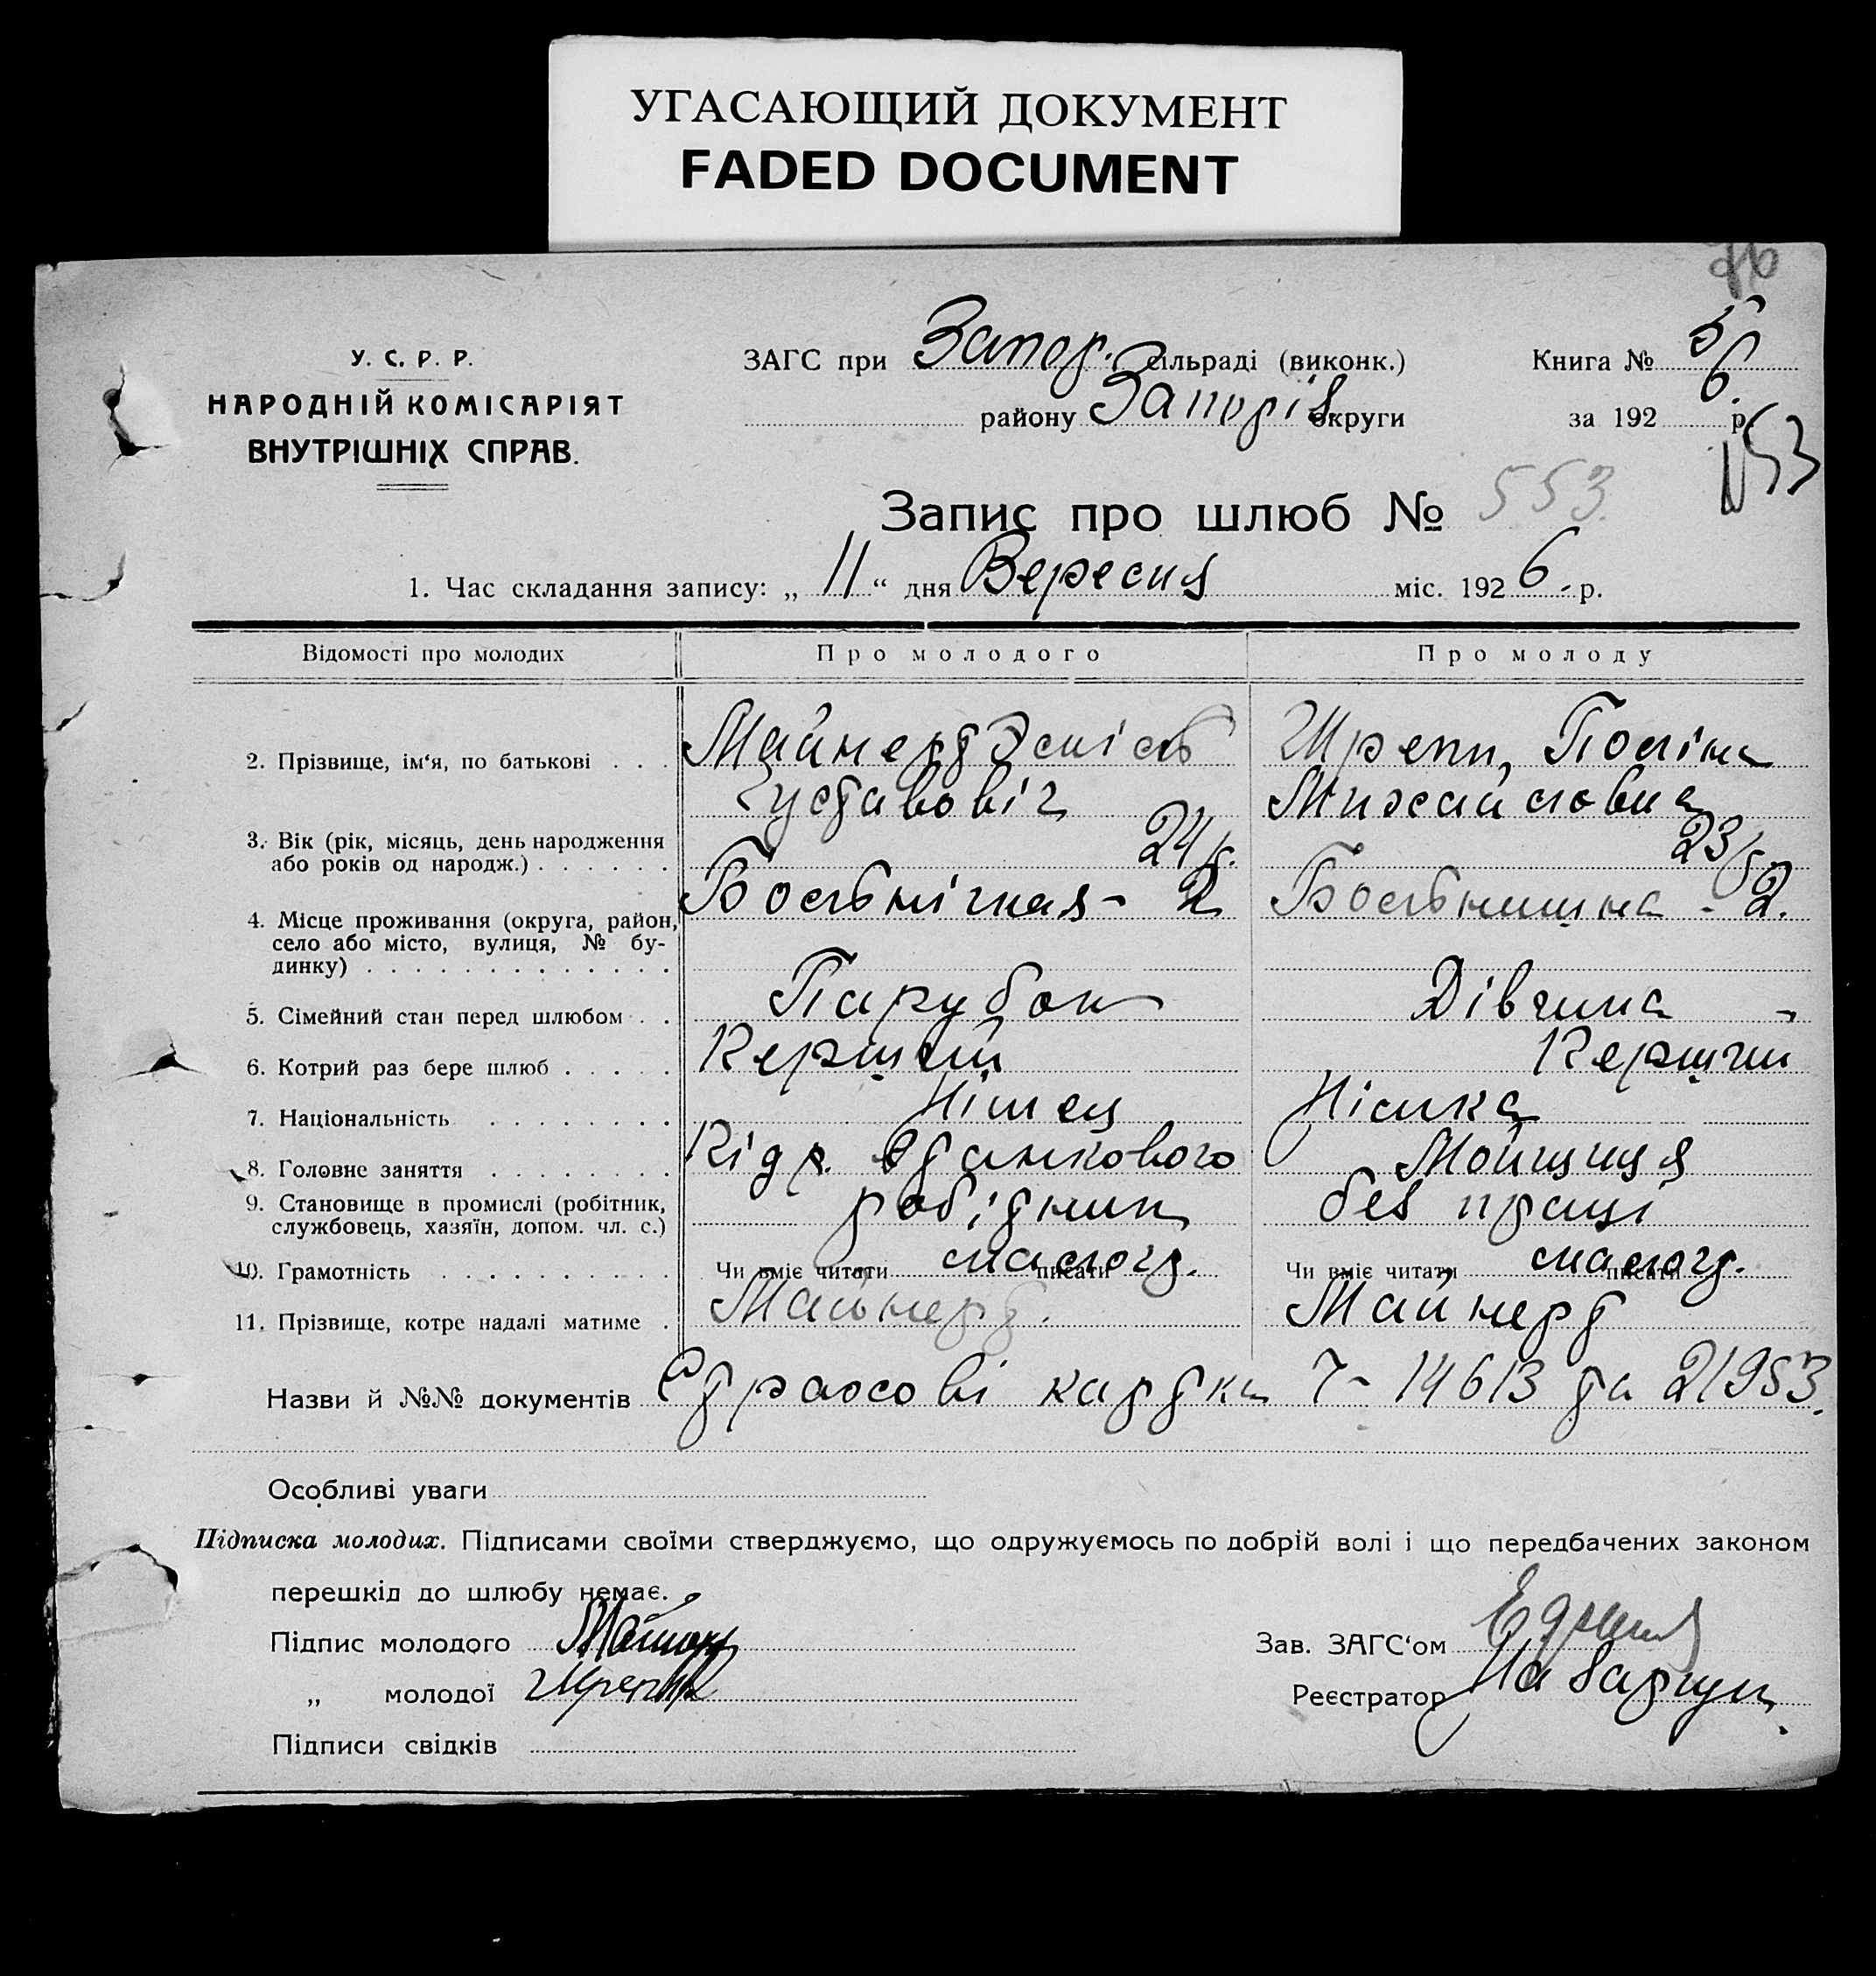 УГАСАЮЩИЙ ДОКУМЕНТ
FADED DOCUMENT
76
У. С. Р. Р.
НАРОДНІЙ КОМІСАРІЯТ
ВНУТРІШНІХ СПРАВ.
ЗАГС при Запор. сільраді (виконк.)
району Запоріз округи
Книга № 5
за 192 6 р.
153
Запис про шлюб № 553.
1. Час складання запису: „ 11 “ дня Вересня міс. 192 6. р.
Відомості про молодих Про молодого Про молоду
2. Прізвище, ім‘я, по батькові . . . Майнерт Эміль Густавовіч Шрепп, Поліна Михайловна
3. Вік (рік, місяць, день народження
або років од народж.) . . . . . . 24 р. 23 р.
4. Місце проживання (округа, район,
село або місто, вулиця, № бу-
динку) . . . . . . . . . . . . . Больнічная - 2 Больнишна - 2.
5. Сімейний стан перед шлюбом . . Парубок Дівчина
6. Котрий раз бере шлюб . . . . . Перший Перший
7. Національність . . . . . . . . Німец Німка
8. Головне заняття . . . . . . . . станкового
9. Становище в промислі (робітник,
службовець, хазяїн, допом. чл. с.) робітник без праці
10. Грамотність . . . . . . . . . . Чи вміє читати писати малогр. Чи вміє читати писати малогр.
11. Прізвище, котре надалі матиме . Майнерт. Майнерт
Назви й №№ документів Страхові картки 7- 14613 та 21953.
Особливі уваги
Підписка молодих. Підписами своїми стверджуємо, що одружуємось по добрій волі і що передбачених законом
перешкід до шлюбу немає.
Підпис молодого
„ молодої
Підписи свідків
Зав. ЗАГС‘ом
Реєстратор